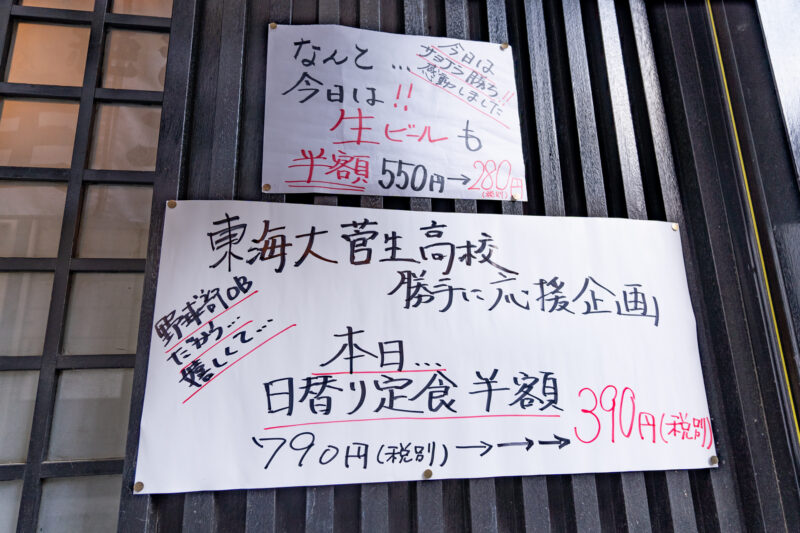 なんと…
今日は!!
今日は
サヨナラ勝ち!!
感動しました
生ビールも
半額 550円→280円
(税別)
東海大菅生高校
勝手に応援企画
野球部OB
だから…
嬉しくて…
本日…
日替り定食 半額
790円(税別)→→→390円(税別)